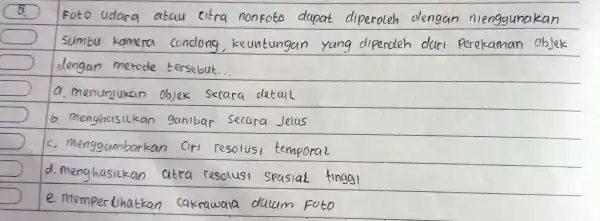 8. Foto udara atau citra nonFoto dapat diperoleh dengan menggunakan
sumbu kamera condong, keuntungan yang diperoleh dari perekaman objek
dengan metode tersebut...
a. menunjukan objek secara detail
b. menghasilkan gambar secara jelas
c. menggambarkan ciri resolusi temporal
d. menghasilkan citra resolusi spasial tinggi
e. memperlihatkan cakrawala dalam Foto